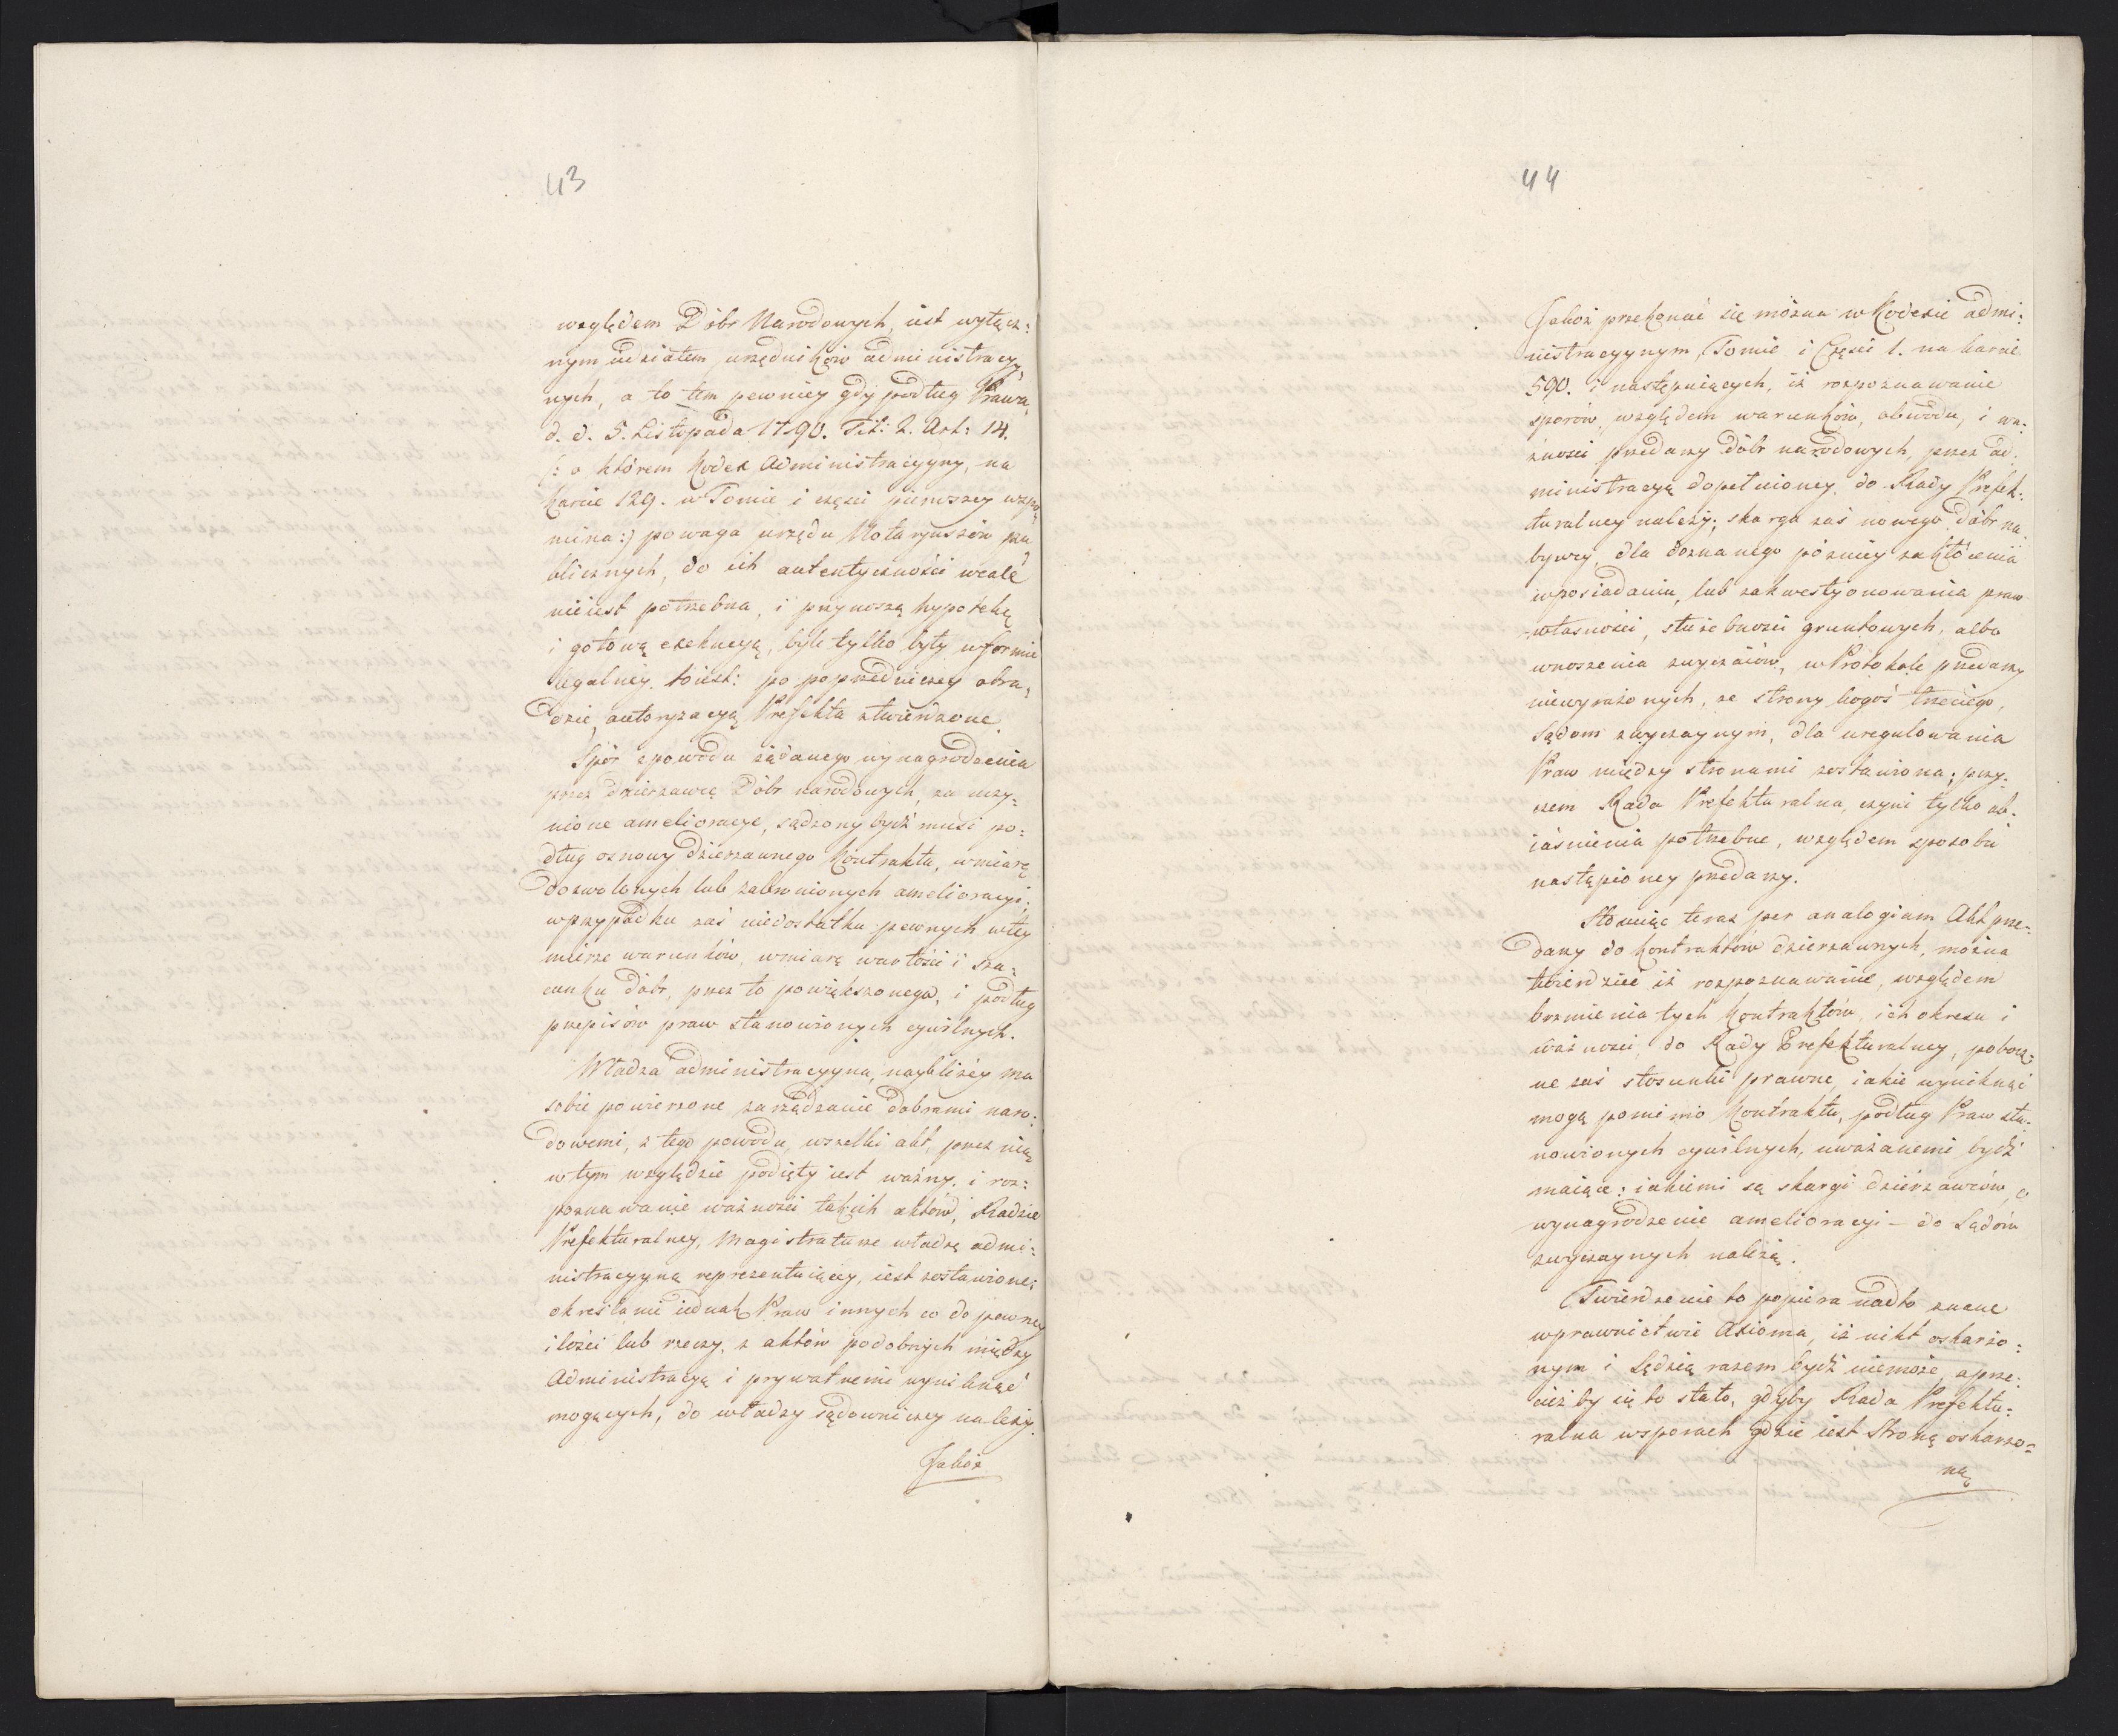 43
względem Dóbr Narodowych, iest wyłącz:
nym udziałem urzędników administracyy,
nych, a to tem pewniey gdy podług Prawa
d. d. 5. Listopada 1790. Tit: 2. Art: 14.
(: o którem Kodex Administracyyny, na
karcie 129. w Tomie i części pierwszey wspo,
mina:) powaga urzędu Notaryuszów pu
blicznych, do ich autentyczności wcale
nieiest potrzebna, i przynoszą hypotekę
i gotową exekucyą, byle tylko były w formie
legalney. to iest: po poprzedniczey obra,
dzie, autoryzacyą Prefekta stwierdzone.
Spór z powodu żądanego wynagrodzenia
przez dzierżawcę Dóbr narodowych, za uczy:
nione amelioracye, sądzony bydź musi po:
dług osnowy dzierżawnego Kontraktu, w miarę
dozwolonych lub zabronionych amelioracyi;
w przypadku zaś niedostatku pewnych w tey
mierze warunków, w miarę wartości i sza:
cunku dóbr, przez to powiększonego, i podług
przepisów praw stanowionych cywilnych.
Władza administracyyna, naybliżey ma
sobie powierzone zarządzanie dobrami naro:
dowemi, z tego powodu, wszelki akt, przez nią
w tym względzie podięty iest ważny. i roz:
poznawanie ważności takich aktów, Radzie
Prefekturalney, Magistraturze władzę admi:
nistracyyną reprezentuiącey, iest zostawione;
określanie iednak Praw innych co do pewney
ilości lub rzeczy, z aktów podobnych między
Administracyą i prywatnemi wyniknąć
mogących, do władzy sądowniczey należy.
Jakoż
44
Jakoż przekonać się można w Kodexie admi:
nistracyynym, Tomie i Części 1. na karcie
590. i następuiących, iż rozpoznawanie
sporów, względem warunków, obwodu, i wa:
żności przedaży dóbr narodowych, przez ad:
ministracyą dopełnioney, do Rady Prefek:
turalney należy; skarga zaś nowego dóbr na:
bywcy, dla doznanego pózniey zakłócenia
w posiadaniu, lub zakwestyonowania praw
własności, służebności gruntowych, albo
wnoszenia zwyczaiów, w Protokole przedaży
niewyrażonych, ze strony kogoś trzeciego,
Sądom zwyczaynym, dla uregulowania
Praw między stronami zostawiona; przy:
czem Rada Prefekturalna, czyni tylko ob:
iaśnienia potrzebne, względem sposobu
nastąpioney przedaży.
Stosuiąc teraz per analogium Akt prze:
daży do kontraktów dzierżawnych, można
twierdzić iż rozpoznawanie, względem
brzmienia tych Kontraktów, ich okresu i
ważności, do Rady Prefekturalney, pobocz:
ne zaś stosunki prawne, iakie wyniknąć
mogą pomimo Kontraktu, podług Praw sta:
nowionych cywilnych, uważanemi bydź
maiące: iakiemi są skargi dzierżawców, o
wynagrodzenie amelioracyi – do Sądów
zwyczaynych należą.
Twierdzenie to popiera nadto znane
w prawnictwie Axioma, iż nikt oskarżo:
nym i Sędzią razem bydź niemoże, a prze:
cież by się to stało, gdyby Rada Prefektu:
ralna w sporach gdzie iest Stroną oskarżo:
ną